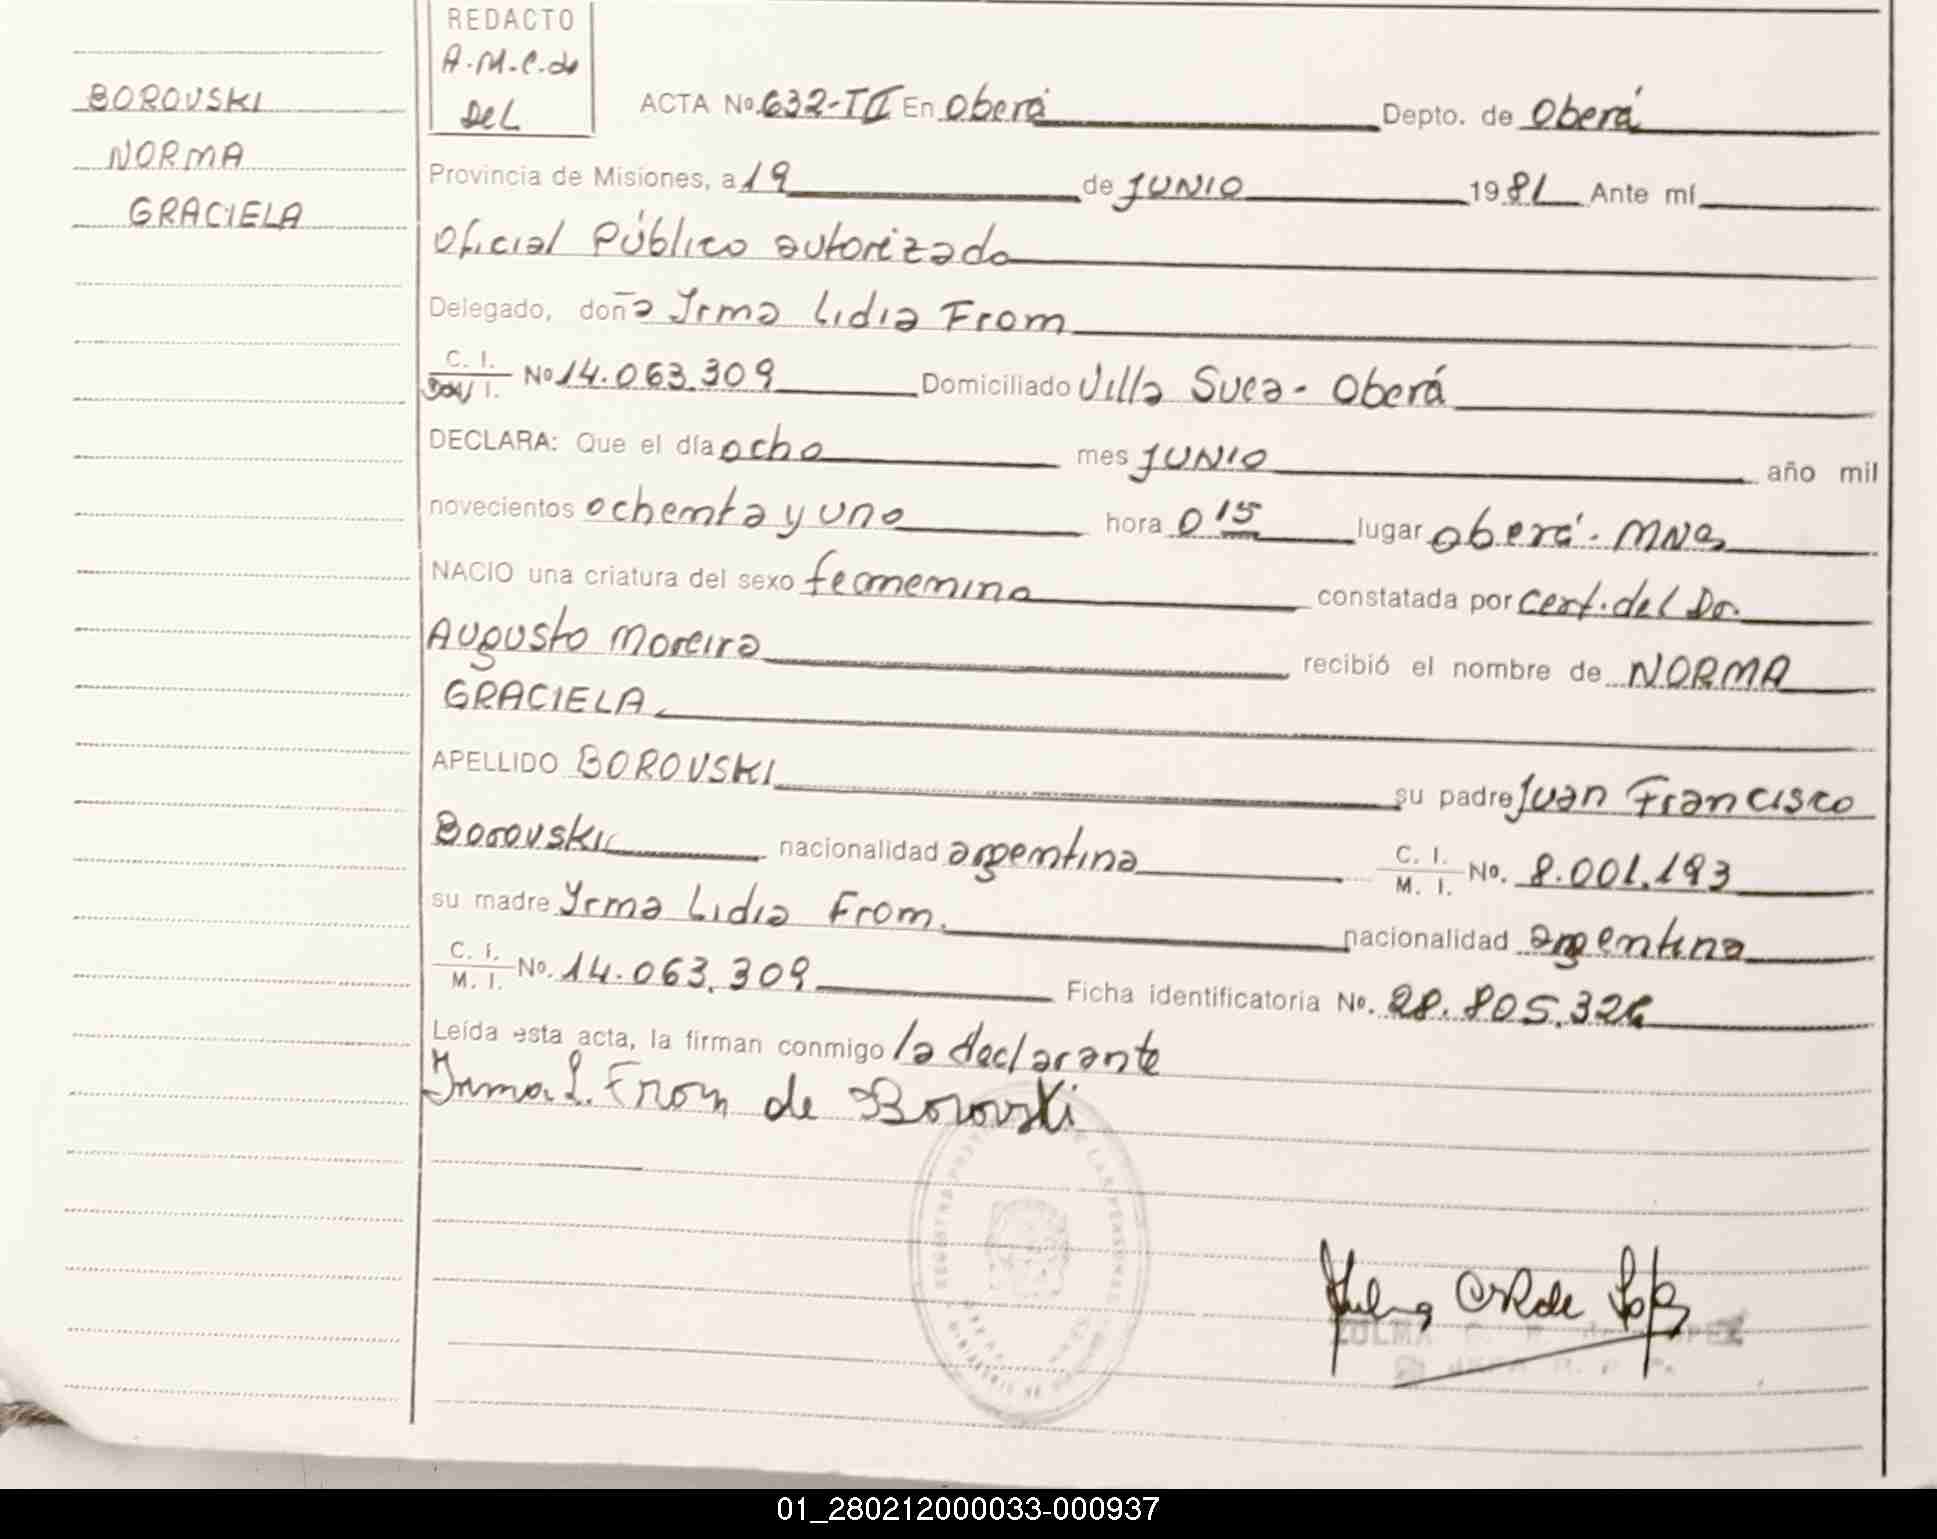 REDACTO
A.M.C.de
Del
BOROVSKI
NORMA
GRACIELA
ACTA No. 632-TII En Oberá Depto. de Oberá
Provincia de Misiones, a 19 de JUNIO 1981 Ante mí
Oficial Público autorizado
Delegado, doña Yrma Lidia From
C. I. No 14.063.309 Domiciliado Villa Suea - Oberá
DECLARA: Que el día ocho mes JUNIO año mil
novecientos ochenta y uno hora 0 15 lugar Oberá - MNES
NACIO una criatura del sexo femenino constatada por Cert. del Dr.
Augusto Moreira recibió el nombre de NORMA
GRACIELA
APELLIDO BOROVSKI su padre Juan Francisco
Borovski nacionalidad argentina C. I. M. I. No. 8.001.193
su madre Yrma Lidia From. nacionalidad argentina
C. I. M. I. No. 14.063.309 Ficha identificatoria No. 28.805.326
Leída esta acta, la firman conmigo la declarante
Irma L. From de Borovski
ZULMA
01_280212000033-000937